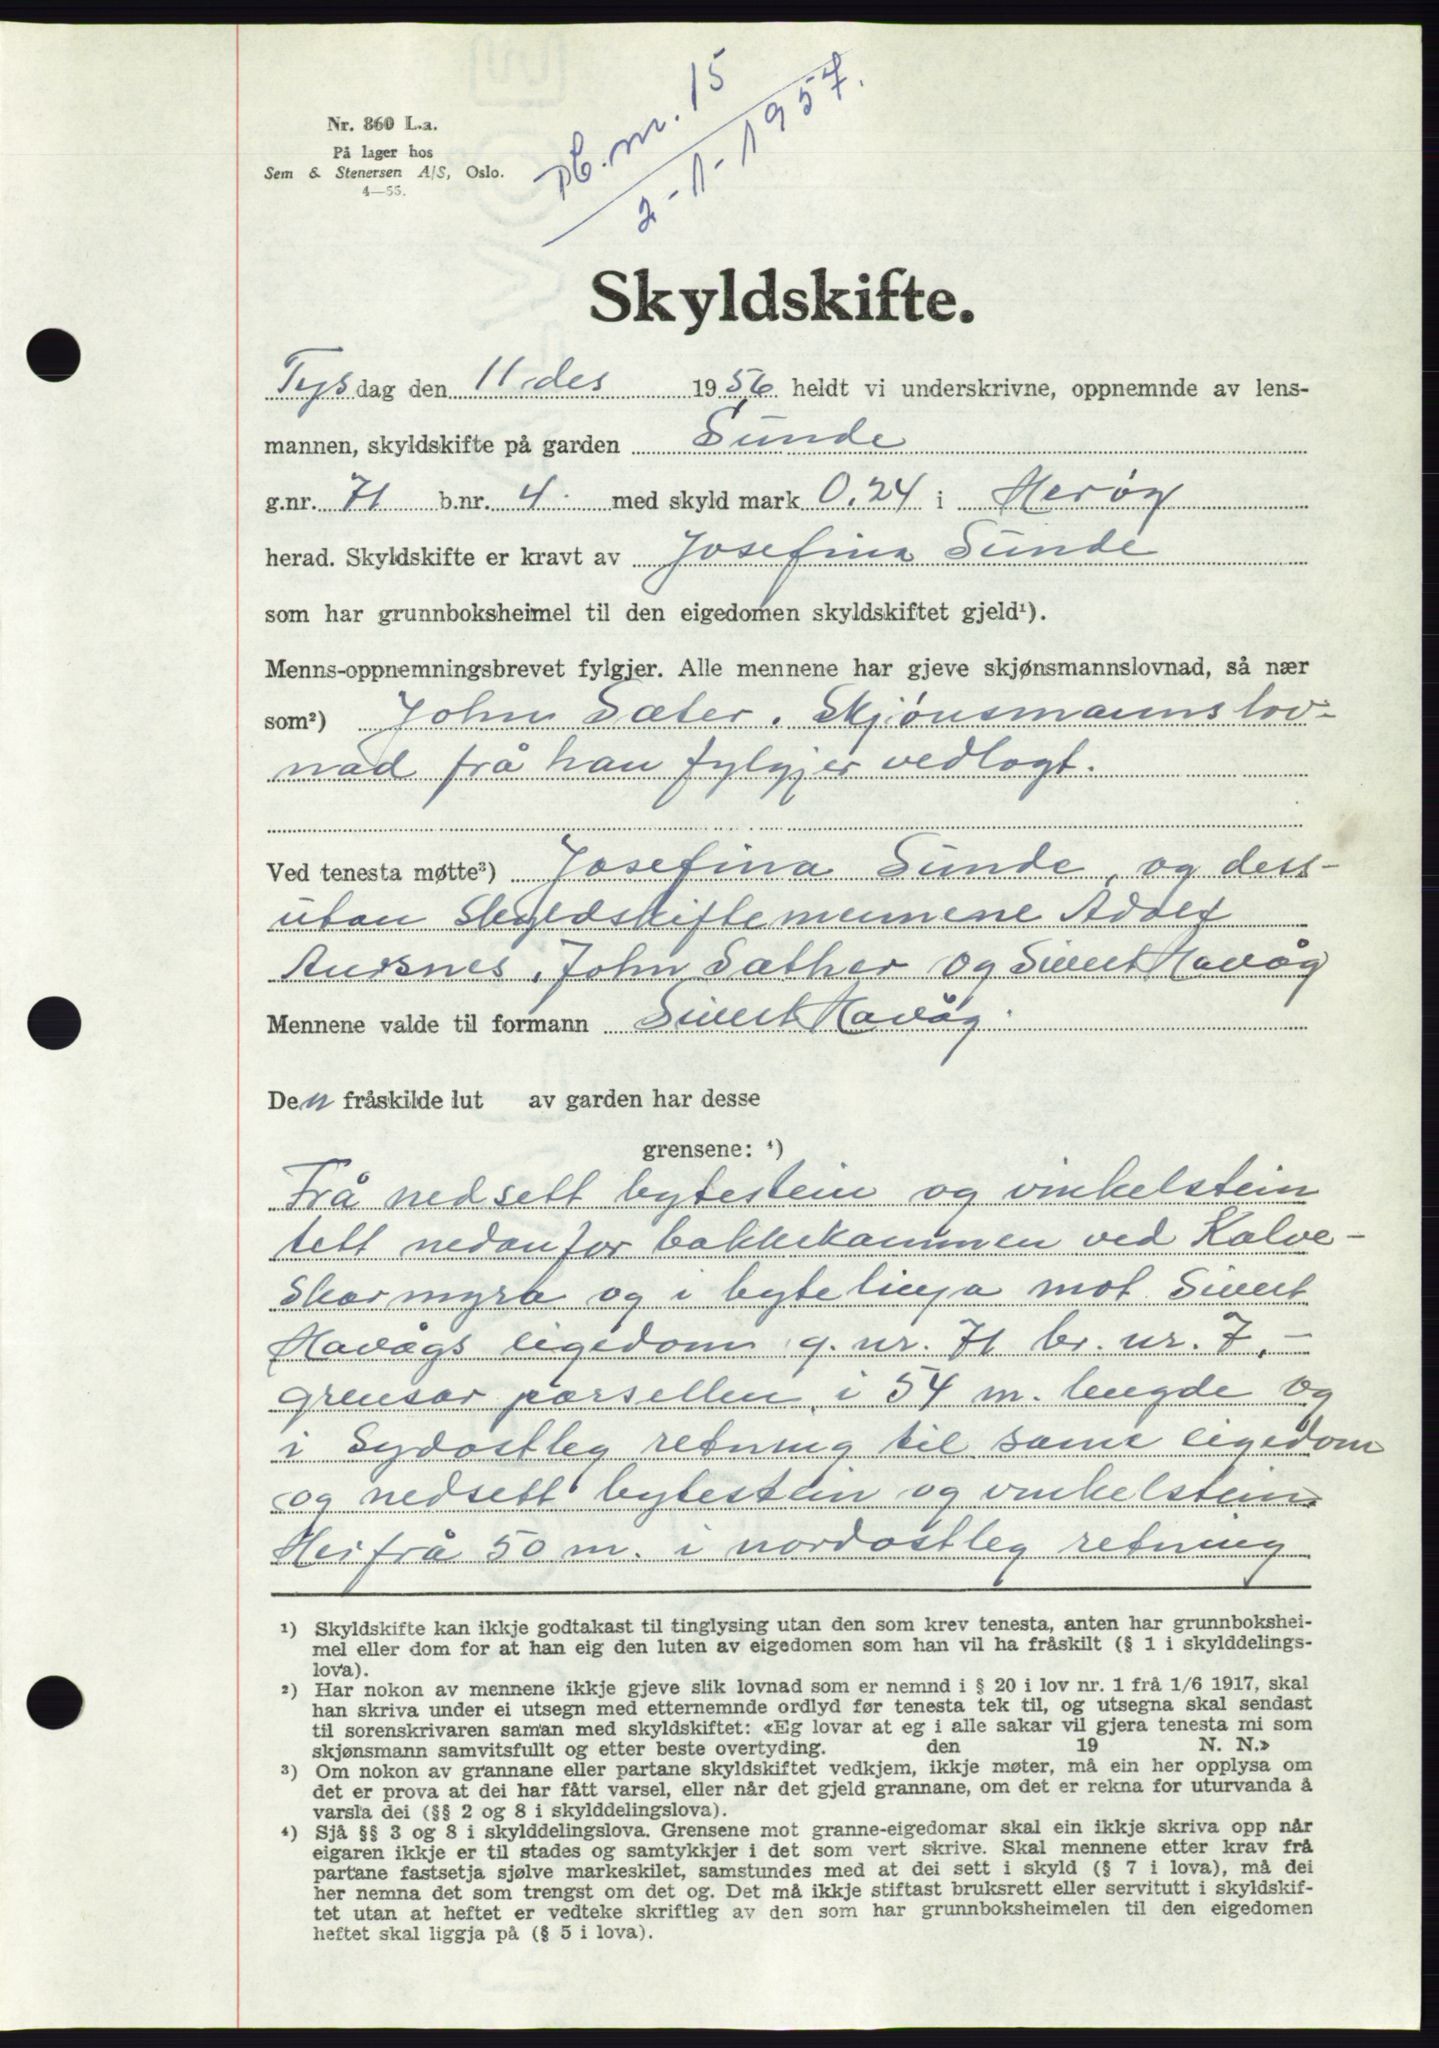 Nr. 860 L.a.
På lager hos
Sem & Stenersen A/S, Oslo.
4—55.
Pb. nr. 15
2-1-1957.
Skyldskifte.
Tysdag den 11. des 1956 heldt vi underskrivne, oppnemnde av lens-
mannen, skyldskifte på garden Sunde
g.nr. 71 b.nr. 4. med skyld mark 0.24 i Herøy
herad. Skyldskifte er kravt av Josefina Sunde
som har grunnboksheimel til den eigedomen skyldskiftet gjeld¹).
Menns-oppnemningsbrevet fylgjer. Alle mennene har gjeve skjønsmannslovnad, så nær
som²) John Sæter. Skjønsmannslov-
nad frå han fylgjer vedlagt.
Ved tenesta møtte³) Josefina Sunde, og dess-
utan skyldskiftemennene Adolf
Aursnes, John Sæther og Sivert Havåg
Mennene valde til formann Sivert Havåg.
Den fråskilde lut av garden har desse
grensene: ⁴)
Frå nedsett bytestein og vinkelstein
tett nedanfor bakkekammen ved Kalve-
skarmyra og i bytelinja mot Sivert
Havågs eigedom g. nr. 71 br. nr. 7, –
grensar parsellen i 54 m. lengde og
i sydostleg retning til same eigedom
og nedsett bytestein og vinkelstein.
Herfrå 50 m. i nordostleg retning
¹) Skyldskifte kan ikkje godtakast til tinglysing utan den som krev tenesta, anten har grunnbokshei-
mel eller dom for at han eig den luten av eigedomen som han vil ha fråskilt (§ 1 i skylddelings-
lova).
²) Har nokon av mennene ikkje gjeve slik lovnad som er nemnd i § 20 i lov nr. 1 frå 1/6 1917, skal
han skriva under ei utsegn med etternemnde ordlyd før tenesta tek til, og utsegna skal sendast
til sorenskrivaren saman med skyldskiftet: «Eg lovar at eg i alle sakar vil gjera tenesta mi som
skjønsmann samvitsfullt og etter beste overtyding. den 19 N. N.»
³) Om nokon av grannane eller partane skyldskiftet vedkjem, ikkje møter, må ein her opplysa om
det er prova at dei har fått varsel, eller når det gjeld grannane, om det er rekna for uturvanda å
varsla dei (§§ 2 og 8 i skylddelingslova).
⁴) Sjå §§ 3 og 8 i skylddelingslova. Grensene mot granne-eigedomar skal ein ikkje skriva opp når
eigaren ikkje er til stades og samtykkjer i det som vert skrive. Skal mennene etter krav frå
partane fastsetja sjølve markeskilet, samstundes med at dei sett i skyld (§ 7 i lova), må dei
her nemna det som trengst om det og. Det må ikkje stiftast bruksrett eller servitutt i skyldskif-
tet utan at heftet er vedteke skriftleg av den som har grunnboksheimelen til den eigedomen
heftet skal liggja på (§ 5 i lova).